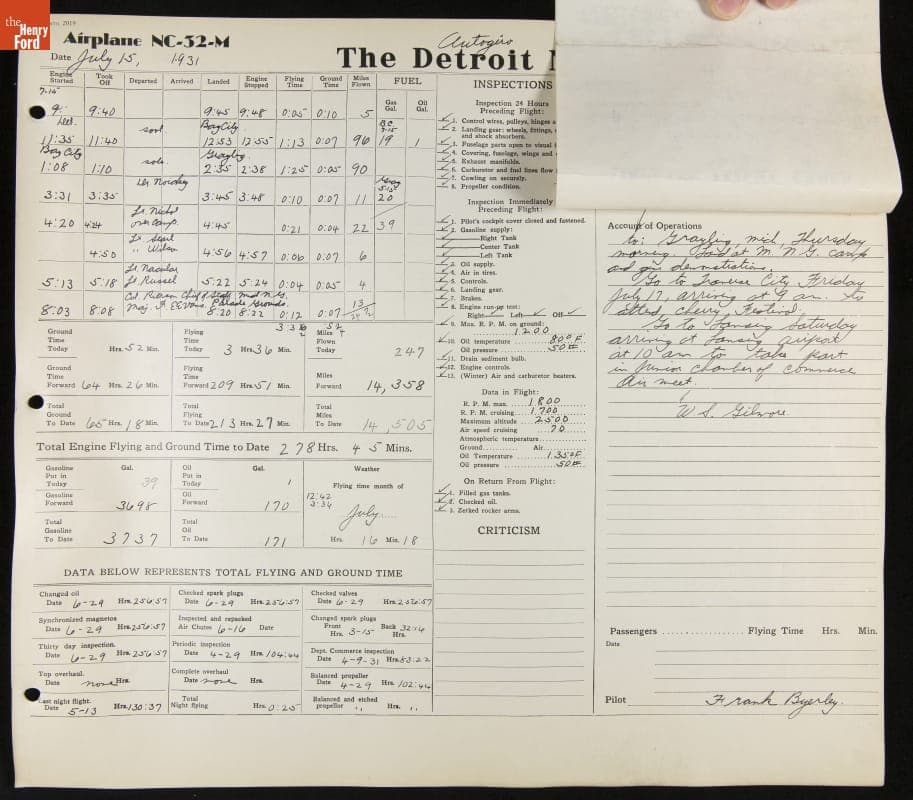 the
Henry
Ford
2019
Airplane NC-52-M
Autogiro
Date July 15, 1931
The Detroit
Engine Started Took Off Departed Arrived Landed Engine Stopped Flying Time Ground Time Miles Flown FUEL
Gas Gal. Oil Gal.
7-15
9: 9:40 9:45 9:48 0:05 0:10 5
Det. Bay City B.C. 7-15
11:35 11:40 solo 12:53 12:55 1:13 0:07 96 19 1
Bay City Grayling
1:08 1:10 solo 2:35 2:38 1:25 0:05 90
3:31 3:35 3:45 3:48 0:10 0:07 11 20
Lt. Nichol
4:20 4:24 over camp. 4:45 0:21 0:04 22 39
4:50 " Wilson 4:56 4:57 0:06 0:07 6
5:13 5:18 Lt. Russel 5:22 5:24 0:04 0:05 4
8:03 8:08 8:20 8:22 0:12 0:07 13
Ground Time Today Hrs. 52 Min.
Flying Time Today 3 Hrs. 36 Min.
Miles Flown Today 247
Ground Time Forward 64 Hrs. 26 Min.
Flying Time Forward 209 Hrs. 51 Min.
Miles Forward 14,358
Total Ground To Date 65 Hrs. 18 Min.
Total Flying To Date 213 Hrs. 27 Min.
Total Miles To Date 14,505
Total Engine Flying and Ground Time to Date 278 Hrs. 45 Mins.
Gasoline Put in Today Gal. 39
Oil Put in Today Gal. 1
Weather
Flying time month of
Gasoline Forward 3698
Oil Forward 170
12:42
3:36
July
Total Gasoline To Date 3737
Total Oil To Date 171
Hrs. 16 Min. 18
DATA BELOW REPRESENTS TOTAL FLYING AND GROUND TIME
Changed oil Date 6-29 Hrs. 256:57
Checked spark plugs Date 6-29 Hrs. 256:57
Checked valves Date 6-29 Hrs. 256:57
Synchronized magnetos Date 6-29 Hrs. 256:57
Inspected and repacked Air Chutes 6-16 Date
Changed spark plugs Front Hrs. 3-15 Back 32:16 Hrs.
Thirty day inspection. Date 6-29 Hrs. 256:57
Periodic inspection Date 4-29 Hrs. 104:44
Dept. Commerce inspection Date 4-9-31 Hrs. 83:22
Top overhaul. Date none Hrs.
Complete overhaul Date none Hrs.
Balanced propeller Date 4-29 Hrs. 102:44
Last night flight. Date 5-13 Hrs. 130:37
Total Night flying Hrs. 0:25
Balanced and etched propeller " Hrs. "
INSPECTIONS
Inspection 24 Hours
Preceding Flight:
1. Control wires, pulleys, hinges
2. Landing gear: wheels, fittings,
and shock absorbers.
3. Fuselage parts open to visual
4. Covering, fuselage, wings and
5. Exhaust manifolds.
6. Carburetor and fuel lines flow
7. Cowling on securely.
8. Propeller condition.
Inspection Immediately
Preceding Flight:
1. Pilot's cockpit cover closed and fastened.
2. Gasoline supply:
Right Tank
Center Tank
Left Tank
3. Oil supply.
4. Air in tires.
5. Controls.
6. Landing gear.
7. Brakes.
8. Engine run-up test:
Right Left Off
9. Max. R. P. M. on ground:
1200
10. Oil temperature 80°F
Oil pressure 50#
11. Drain sediment bulb.
12. Engine controls.
13. (Winter) Air and carburetor heaters.
Data in Flight:
R. P. M. max. 1800
R. P. M. cruising 1700
Maximum altitude 2500
Air speed cruising 70
Atmospheric temperature
Ground Air
Oil Temperature 135°F
Oil pressure 50#
On Return From Flight:
1. Filled gas tanks.
2. Checked oil.
3. Zerked rocker arms.
CRITICISM
Account of Operations
to: Grayling, mich, Thursday
morning. Land at M. N. G. camp
and give demonstrations.
Go to Traverse City, Friday
July 17, arriving at 9 am. to
attend, cherry, Festival.
Go to Lansing Saturday
arriving at Lansing airport
at 10 am to take part
in Junior chamber of commerce
air meet.
W S. Gilmore.
Passengers Flying Time Hrs. Min.
Date
Pilot Frank Byerley.